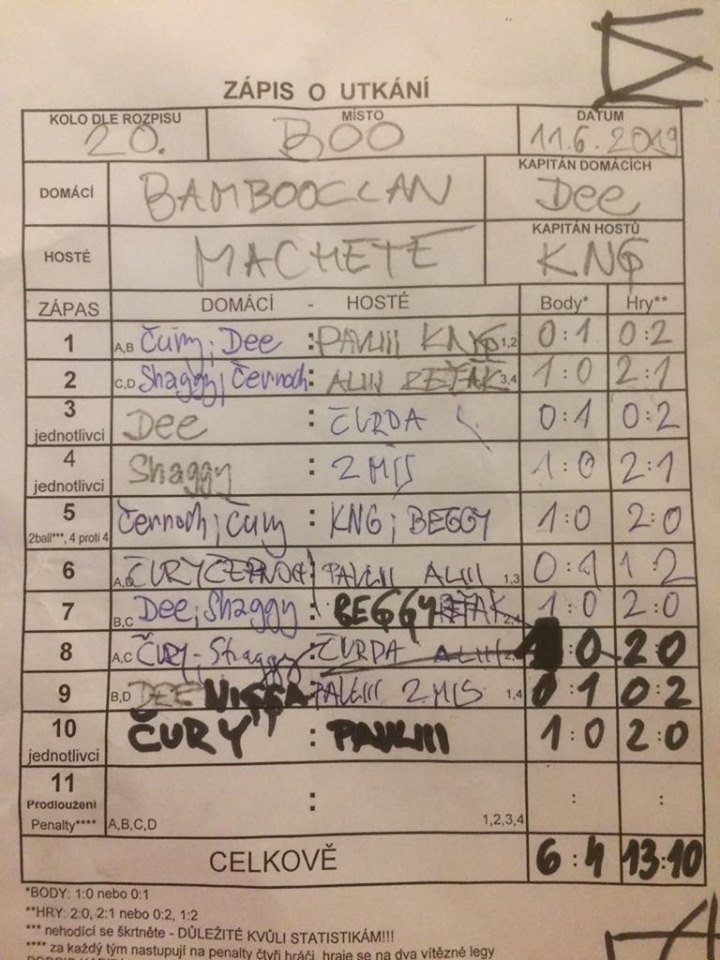 ZÁPIS O UTKÁNÍ
KOLO DLE ROZPISU MÍSTO DATUM
20. BOO 11.6.2019
DOMÁCÍ BAMBOOCLAN KAPITÁN DOMÁCÍCH Dee
HOSTÉ MACHETE KAPITÁN HOSTŮ KNG
ZÁPAS DOMÁCÍ - HOSTÉ Body* Hry**
1 A,B Čury; Dee : PAVLIII KNG 1,2 0:1 0:2
2 C,D Shaggy; Černoch : ALIII ŘEŤÁK 3,4 1:0 2:1
3 jednotlivci Dee : ČURDA 0:1 0:2
4 jednotlivci Shaggy : 2MIS 1:0 2:1
5 2ball***, 4 proti 4 Černoch; Čury : KNG; BEGGY 1:0 2:0
6 A,D ČURY ČERNOCH : PAVLIII ALIII 1,3 0:1 1:2
7 B,C Dee; Shaggy : BEGGY ŘEŤÁK 2,4 1:0 2:0
8 A,C ČURY - Shaggy : ČURDA ALIII 1:0 2:0
9 B,D DEE NISSA PAVLIII 2MIS 1,4 0:1 0:2
10 jednotlivci ČURY : PAVLIII 1:0 2:0
11 Prodloužení Penalty**** A,B,C,D : 1,2,3,4 : :
CELKOVĚ 6:4 13:10
*BODY: 1:0 nebo 0:1
**HRY: 2:0, 2:1 nebo 0:2, 1:2
*** nehodící se škrtněte - DŮLEŽITÉ KVŮLI STATISTIKÁM!!!
**** za každý tým nastupují na penalty čtyři hráči, hraje se na dva vítězné legy